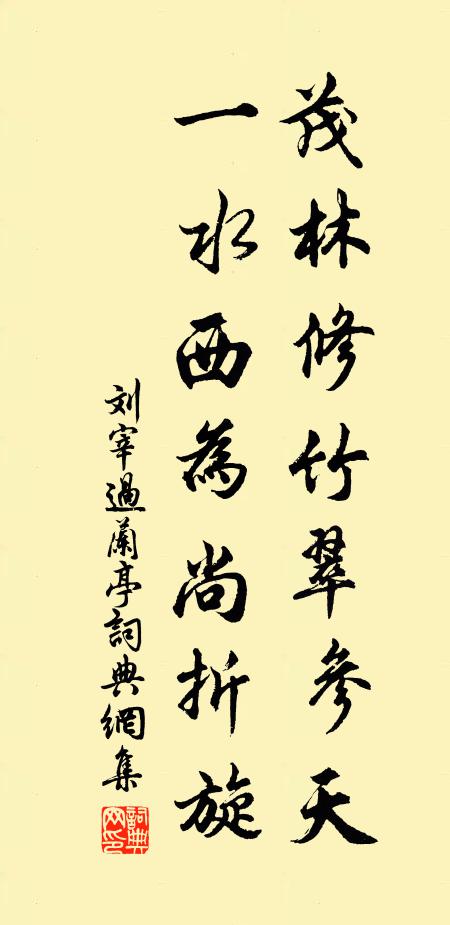 茂林修竹翠參天
一水西為尚折旋
刘宰過蘭亭詞典網集
詞典網印